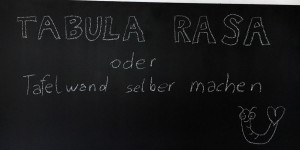 TABULA RASA
oder
Tafelwand selber machen